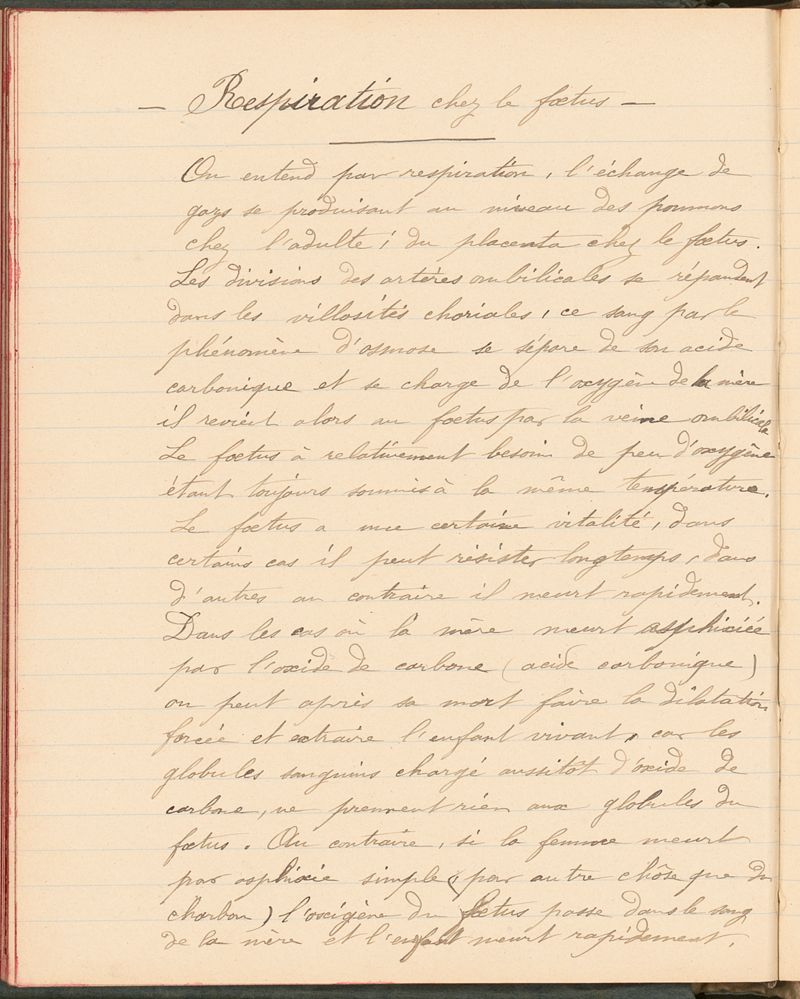 — Respiration chez le fœtus —
On entend par respiration, l'échange de
gazs se produisant au niveau des poumons
chez l'adulte; du placenta chez le fœtus.
Les divisions des artères ombilicales se répandent
dans les villosités choriales, ce sang par le
phénomène d'osmose se sépare de son acide
carbonique et se charge de l'oxygène de la mère
il revient alors au fœtus par la veine ombilicale
Le fœtus à relativement besoin de peu d'oxygène
étant toujours soumis à la même température.
Le fœtus a une certaine vitalité, dans
certains cas il peut résister longtemps, dans
d'autres au contraire il meurt rapidement.
Dans les cas où la mère meurt asphixiée
par l'oxide de carbone (acide carbonique)
on peut après sa mort faire la dilatation
forcée et extraire l'enfant vivant, car les
globules sanguins chargé aussitôt d'oxide de
carbone, ne prennent rien aux globules du
fœtus. Au contraire, si la femme meurt
par asphixie simple (par autre chôse que du
charbon) l'oxigène du fœtus passe dans le sang
de la mère et l'enfant meurt rapidement.